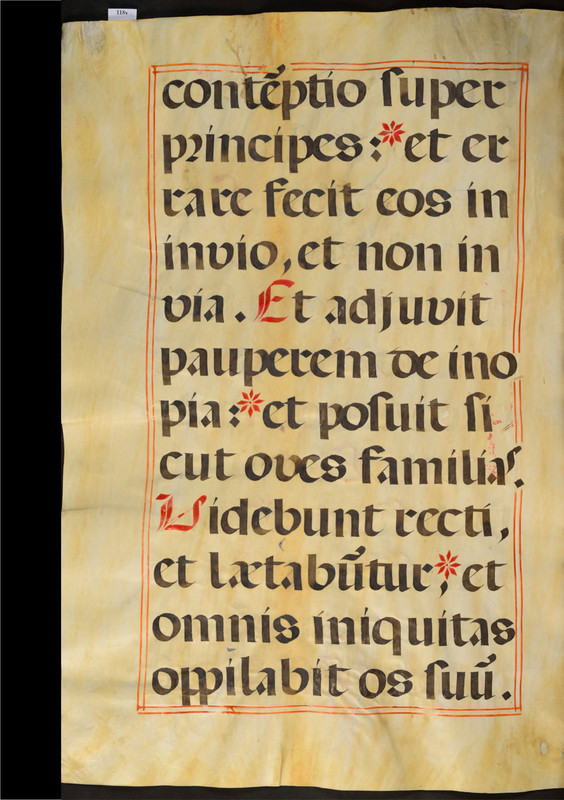 118v
contẽptio ſuper
principes :* et er
rare fecit eos in
invio, et non in
via . Et adjuvit
pauperem de ino
pia :* et poſuit ſi
cut oves familias.
Videbunt recti,
et lætabũtur,* et
omnis iniquitas
oppilabit os ſuũ .